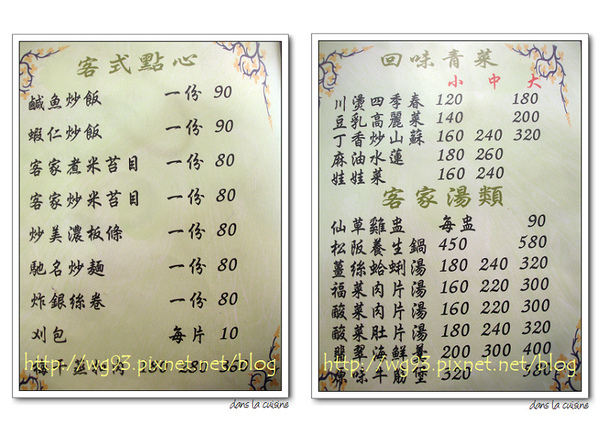 客式點心
鹹魚炒飯 一份 90
蝦仁炒飯 一份 90
客家煮米苔目 一份 80
客家炒米苔目 一份 80
炒美濃板條 一份 80
馳名炒麵 一份 80
炸銀絲卷 一份 80
刈包 每片 10
http://wg93.pixnet.net/blog
280 360
dans la cuisine
回味青菜
小 中 大
川燙四季春 120 180
豆乳高麗菜 140 200
丁香炒山蘇 160 240 320
麻油水蓮 180 260
娃娃菜 160 240
客家湯類
仙草雞盅 每盅 90
松阪養生鍋 450 580
薑絲蛤蜊湯 180 240 320
福菜肉片湯 160 220 300
酸菜肉片湯 160 220 300
酸菜肚片湯 180 240 320
翡翠海鮮羹 200 300 400
http://wg93.pixnet.net/blog
原味牛筋煲 320 580
dans la cuisine